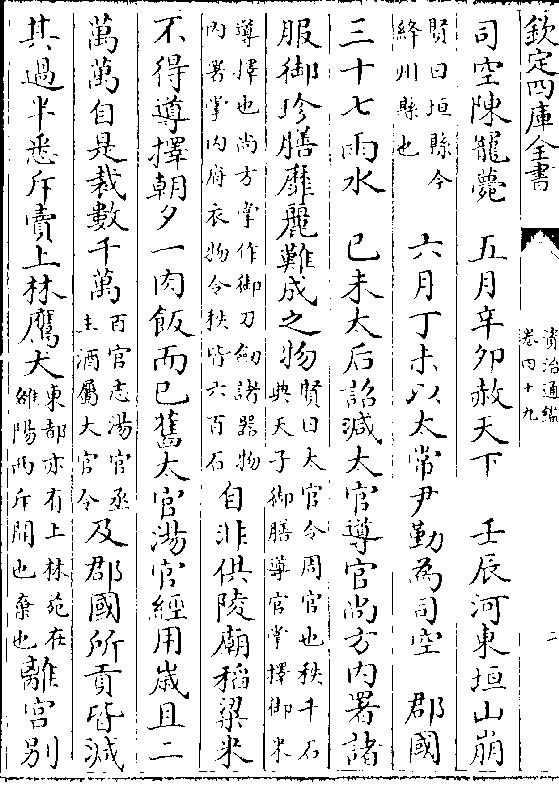 欽定四庫全書
資治通鑑
卷四十九
二
司空陳寵薨　五月辛卯赦天下　壬辰河東垣山崩
賢曰垣縣今
絳州縣也
六月丁未以太常尹勤為司空　郡國
三十七雨水　己未太后詔減太官導官尚方内署諸
服御珍膳靡麗難成之物
賢曰太官令周官也秩千石
典天子御膳導官掌擇御米
導擇也尚方掌作御刀劒諸器物
内署掌内府衣物令秩皆六百石
自非供陵廟稻粱米
不得導擇朝夕一肉飯而已舊太官湯官經用歲且二
萬萬自是裁數千萬
百官志湯官丞
主酒屬大官令
及郡國所貢皆減
其過半悉斥賣上林鷹犬
東都亦有上林苑在
雒陽西斥開也棄也
離宫别